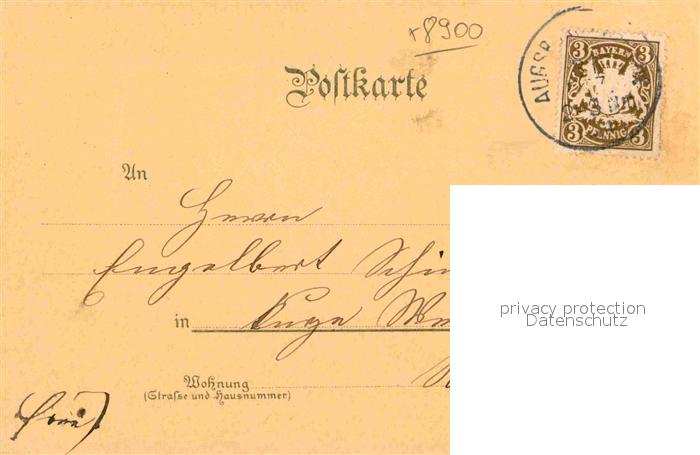 +8900
AUGSB
3 BAYERN 3
3 PFENNIG 3
Postkarte
An
Herrn
Engelbert Schi
in
Wohnung
(Straße und Hausnummer)
privacy protection
Datenschutz